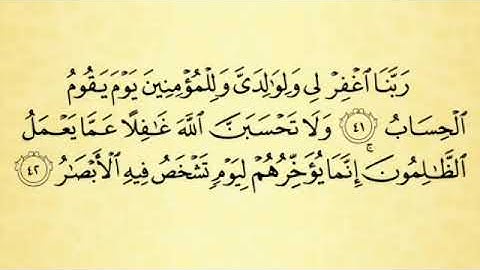 رَبَّنَا ٱغْفِرْ لِى وَلِوَٰلِدَىَّ وَلِلْمُؤْمِنِينَ يَوْمَ يَقُومُ
ٱلْحِسَابُ ٤١ وَلَا تَحْسَبَنَّ ٱللَّهَ غَٰفِلًا عَمَّا يَعْمَلُ
ٱلظَّٰلِمُونَ ۚ إِنَّمَا يُؤَخِّرُهُمْ لِيَوْمٍ تَشْخَصُ فِيهِ ٱلْأَبْصَٰرُ ٤٢